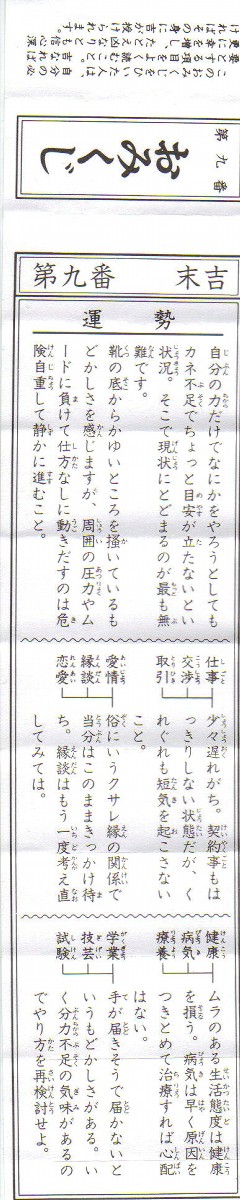 第九番
おみくじ
第九番　末吉
運勢
自分の力だけでなにかをやろうとしても
カネ不足でちょっと目安が立たないとい
状況。そこで現状にとどまるのが最も無
難です。
靴の底からかゆいところを掻いているも
どかしさを感じますが、周囲の圧力やム
ードに負けて仕方なしに動きだすのは危
険自重して静かに進むこと。
仕事
交渉
取引
少々遅れがち。契約事もは
っきりしない状態だが、く
れぐれも短気を起こさない
こと。
愛情
縁談
恋愛
俗にいうクサレ縁の関係で
当分はこのままきっかけ待
ち。縁談はもう一度考え直
してみては。
健康
病気
療養
ムラのある生活態度は健康
を損う。病気ははやく原因を
つきとめて治療すれば心配
はない。
学業
技芸
試験
手が届きそうで届かないと
いうもどかしさがある。い
く分力不足の気味があるの
でやり方を再検討せよ。